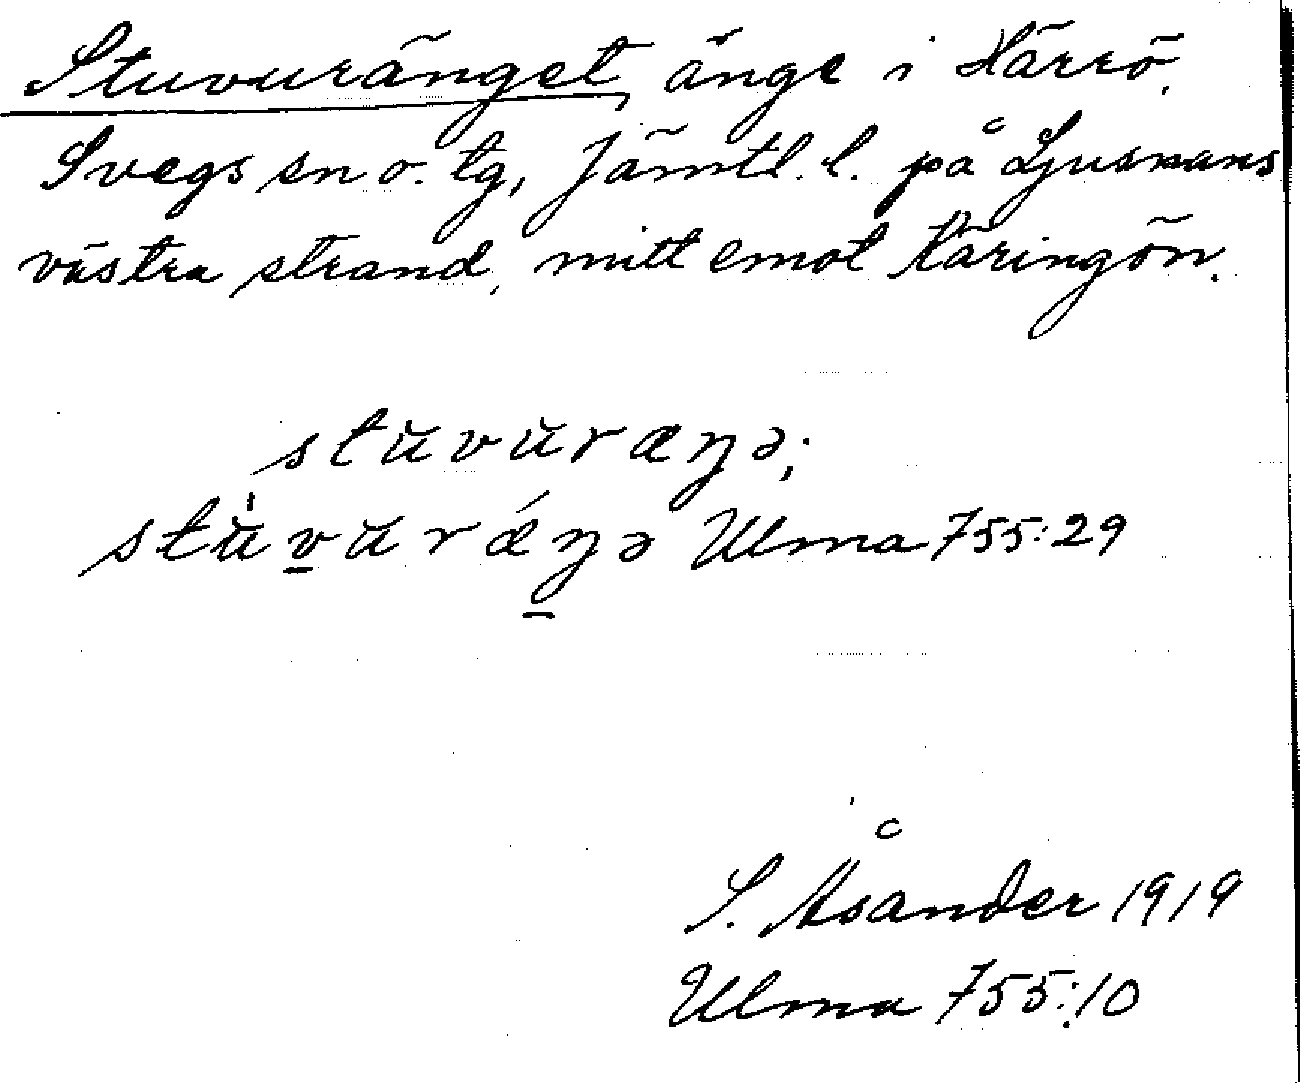 Stuvuränget, änge i Härrö,
Svegs sn o. tg, Jämtl. l. på Ljusnans
västra strand, mitt emot Käringön.
stŭvŭræŋə;
stŭ̀vŭrǽŋə Ulma 755:29
S. Åsander 1919
Ulma 755:10